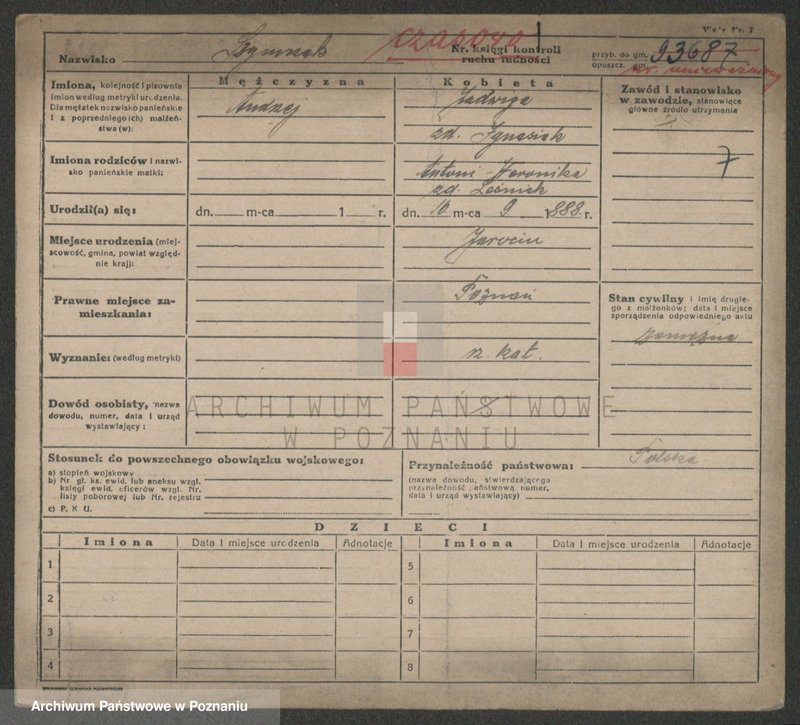 Wzór Nr. 7
Nazwisko Szymczak czasowo Nr. księgi kontroli ruchu ludności
przyb. do gm. 93687
opuszcz. gm. nr. unieważniony
Imiona, kolejność i pisownia
imion według metryki urodzenia.
Dla mężatek nazwisko panieńskie
i z poprzedniego(ich) małżeń-
stwa(w):
Mężczyzna
Andrzej
Kobieta
Jadwiga
zd. Ignasiak
Zawód i stanowisko
w zawodzie, stanowiące
główne źródło utrzymania
7
Imiona rodziców i nazwi-
sko panieńskie matki:
Antoni - Weronika
zd. Leśniak
Urodził(a) się:
dn. m-ca 1 r.
dn. 10 m-ca 9 1888 r.
Miejsce urodzenia (miej-
scowość, gmina, powiat względ-
nie kraj):
Jarocin
Prawne miejsce za-
mieszkania:
Poznań
Stan cywilny i imię drugie-
go z małżonków; data i miejsce
sporządzenia odpowiedniego aktu
zamężna
Wyznanie: (według metryki)
rz. kat.
Dowód osobisty, nazwa
dowodu, numer, data i urząd
wystawiający:
ARCHIWUM PAŃSTWOWE
W POZNANIU
Stosunek do powszechnego obowiązku wojskowego:
a) stopień wojskowy
b) Nr. gł. ks. ewid. lub aneksu wzgl.
księgi ewid. oficerów wzgl. Nr.
listy poborowej lub Nr. rejestru
c) P. K. U.
Przynależność państwowa: Polska
(nazwa dowodu, stwierdzającego
przynależność państwową, numer,
data i urząd wystawiający)
DZIECI
Imiona Data i miejsce urodzenia Adnotacje Imiona Data i miejsce urodzenia Adnotacje
1 5
2 6
3 7
4 8
Archiwum Państwowe w Poznaniu